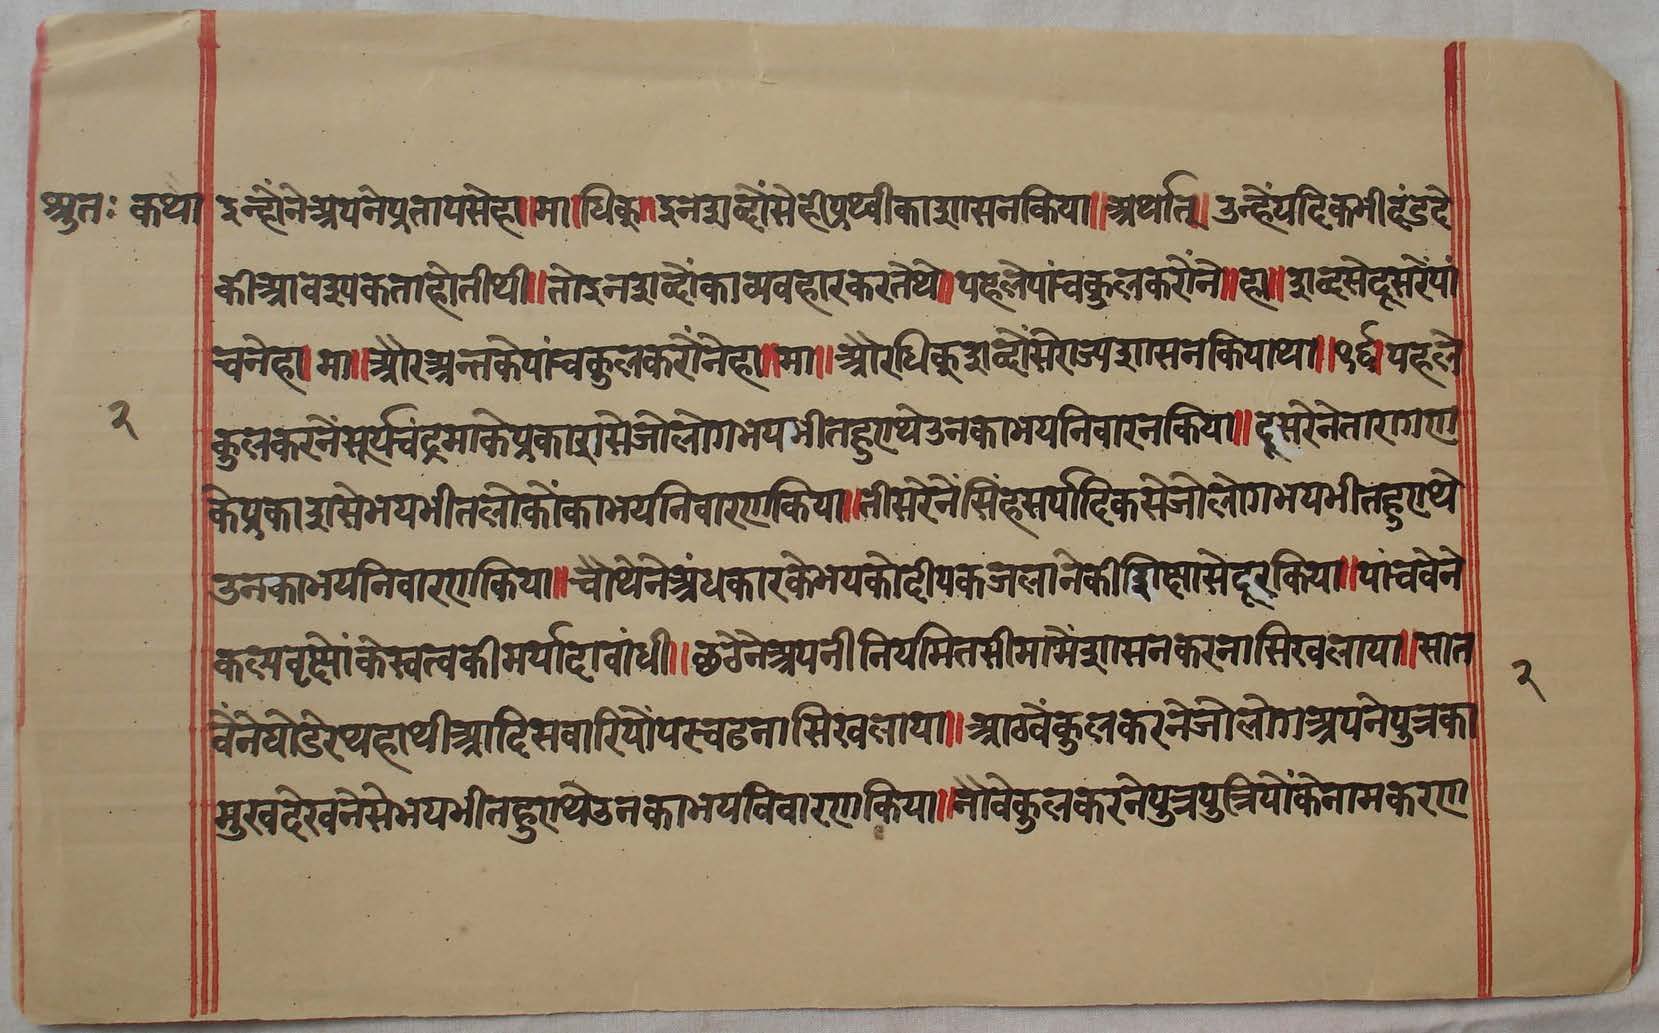 श्रुत: कथा इन्होंनेअपनेप्रतापसेहा॥मा।धिक्॥इनशब्दोंसेहीपृथ्वीकाशासनकिया॥अर्थात्॥उन्हेंयदिकभीदंडदे
कीआवश्यकताहोतीथी॥तोइनशब्दोंकाव्यवहारकरतेथे॥पहलेपांचकुलकरोंने॥हा॥शब्दसेदूसरेपां
चनेहा।मा॥औरअन्तकेपांचकुलकरोंनेहा॥मा॥औरधिक्शब्दोंसेराज्यशासनकियाथा॥१६॥पहले
२
कुलकरनेंसूर्यचंद्रमाकेप्रकाशसेजोलोगभयभीतहुएथेउनकाभयनिवारनकिया॥दूसरेनेतारागण
केप्रकाशसेभयभीतलोकोंकाभयनिवारणकिया॥तीसरेनेंसिंहसर्पादिकसेजोलोगभयभीतहुएथे
उनकाभयनिवारणकिया॥चौथेनेअंधकारकेभयकोदीपकजलानेकीशिक्षासेदूरकिया॥पांचवेने
कल्पवृक्षोंकेस्वत्वकीमर्यादाबांधी॥छठेनेअपनीनियमितसीमामेंशासनकरनासिखलाया॥सात
२
वेंनेघोडेरथहाथीआदिसवारियोंपरचढनासिखलाया॥आठवेंकुलकरनेजोलोगअपनेपुत्रका
मुखदेखनेसेभयभीतहुएथेउनकाभयनिवारणकिया॥नौवेकुलकरनेपुत्रपुत्रियोंकेनामकरण